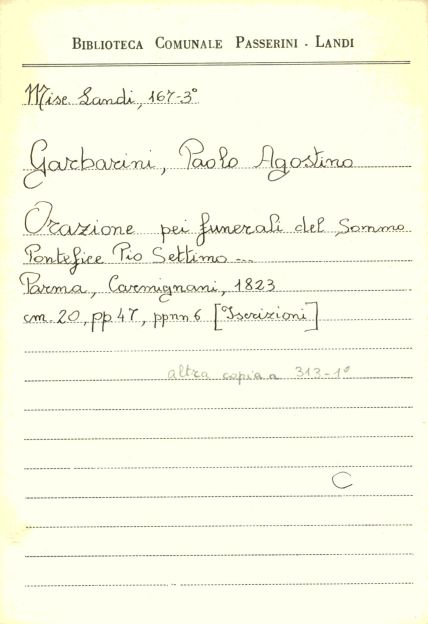 BIBLIOTECA COMUNALE PASSERINI - LANDI
Misc. Landi, 167-3°
Garbarini, Paolo Agostino
Orazione pei funerali del Sommo
Pontefice Pio Settimo ...
Parma, Carmignani, 1823
cm. 20, pp. 47, ppnn 6 [Iscrizioni]
altra copia a 313-1°
C